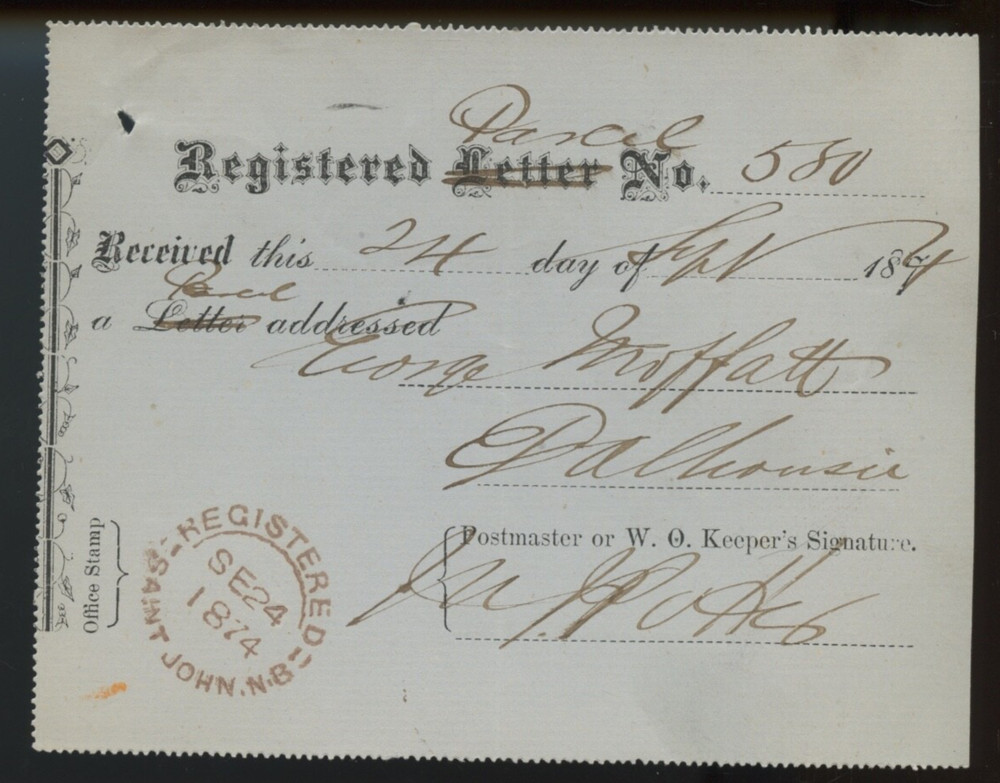 Parcel
Registered Letter No. 580
Received this 24 day of Sept 1874
Parcel
a Letter addressed
George Moffatt
Dalhousie
Postmaster or W. O. Keeper's Signature.
Office Stamp
REGISTERED
SE 24
1874
SAINT JOHN. N.B